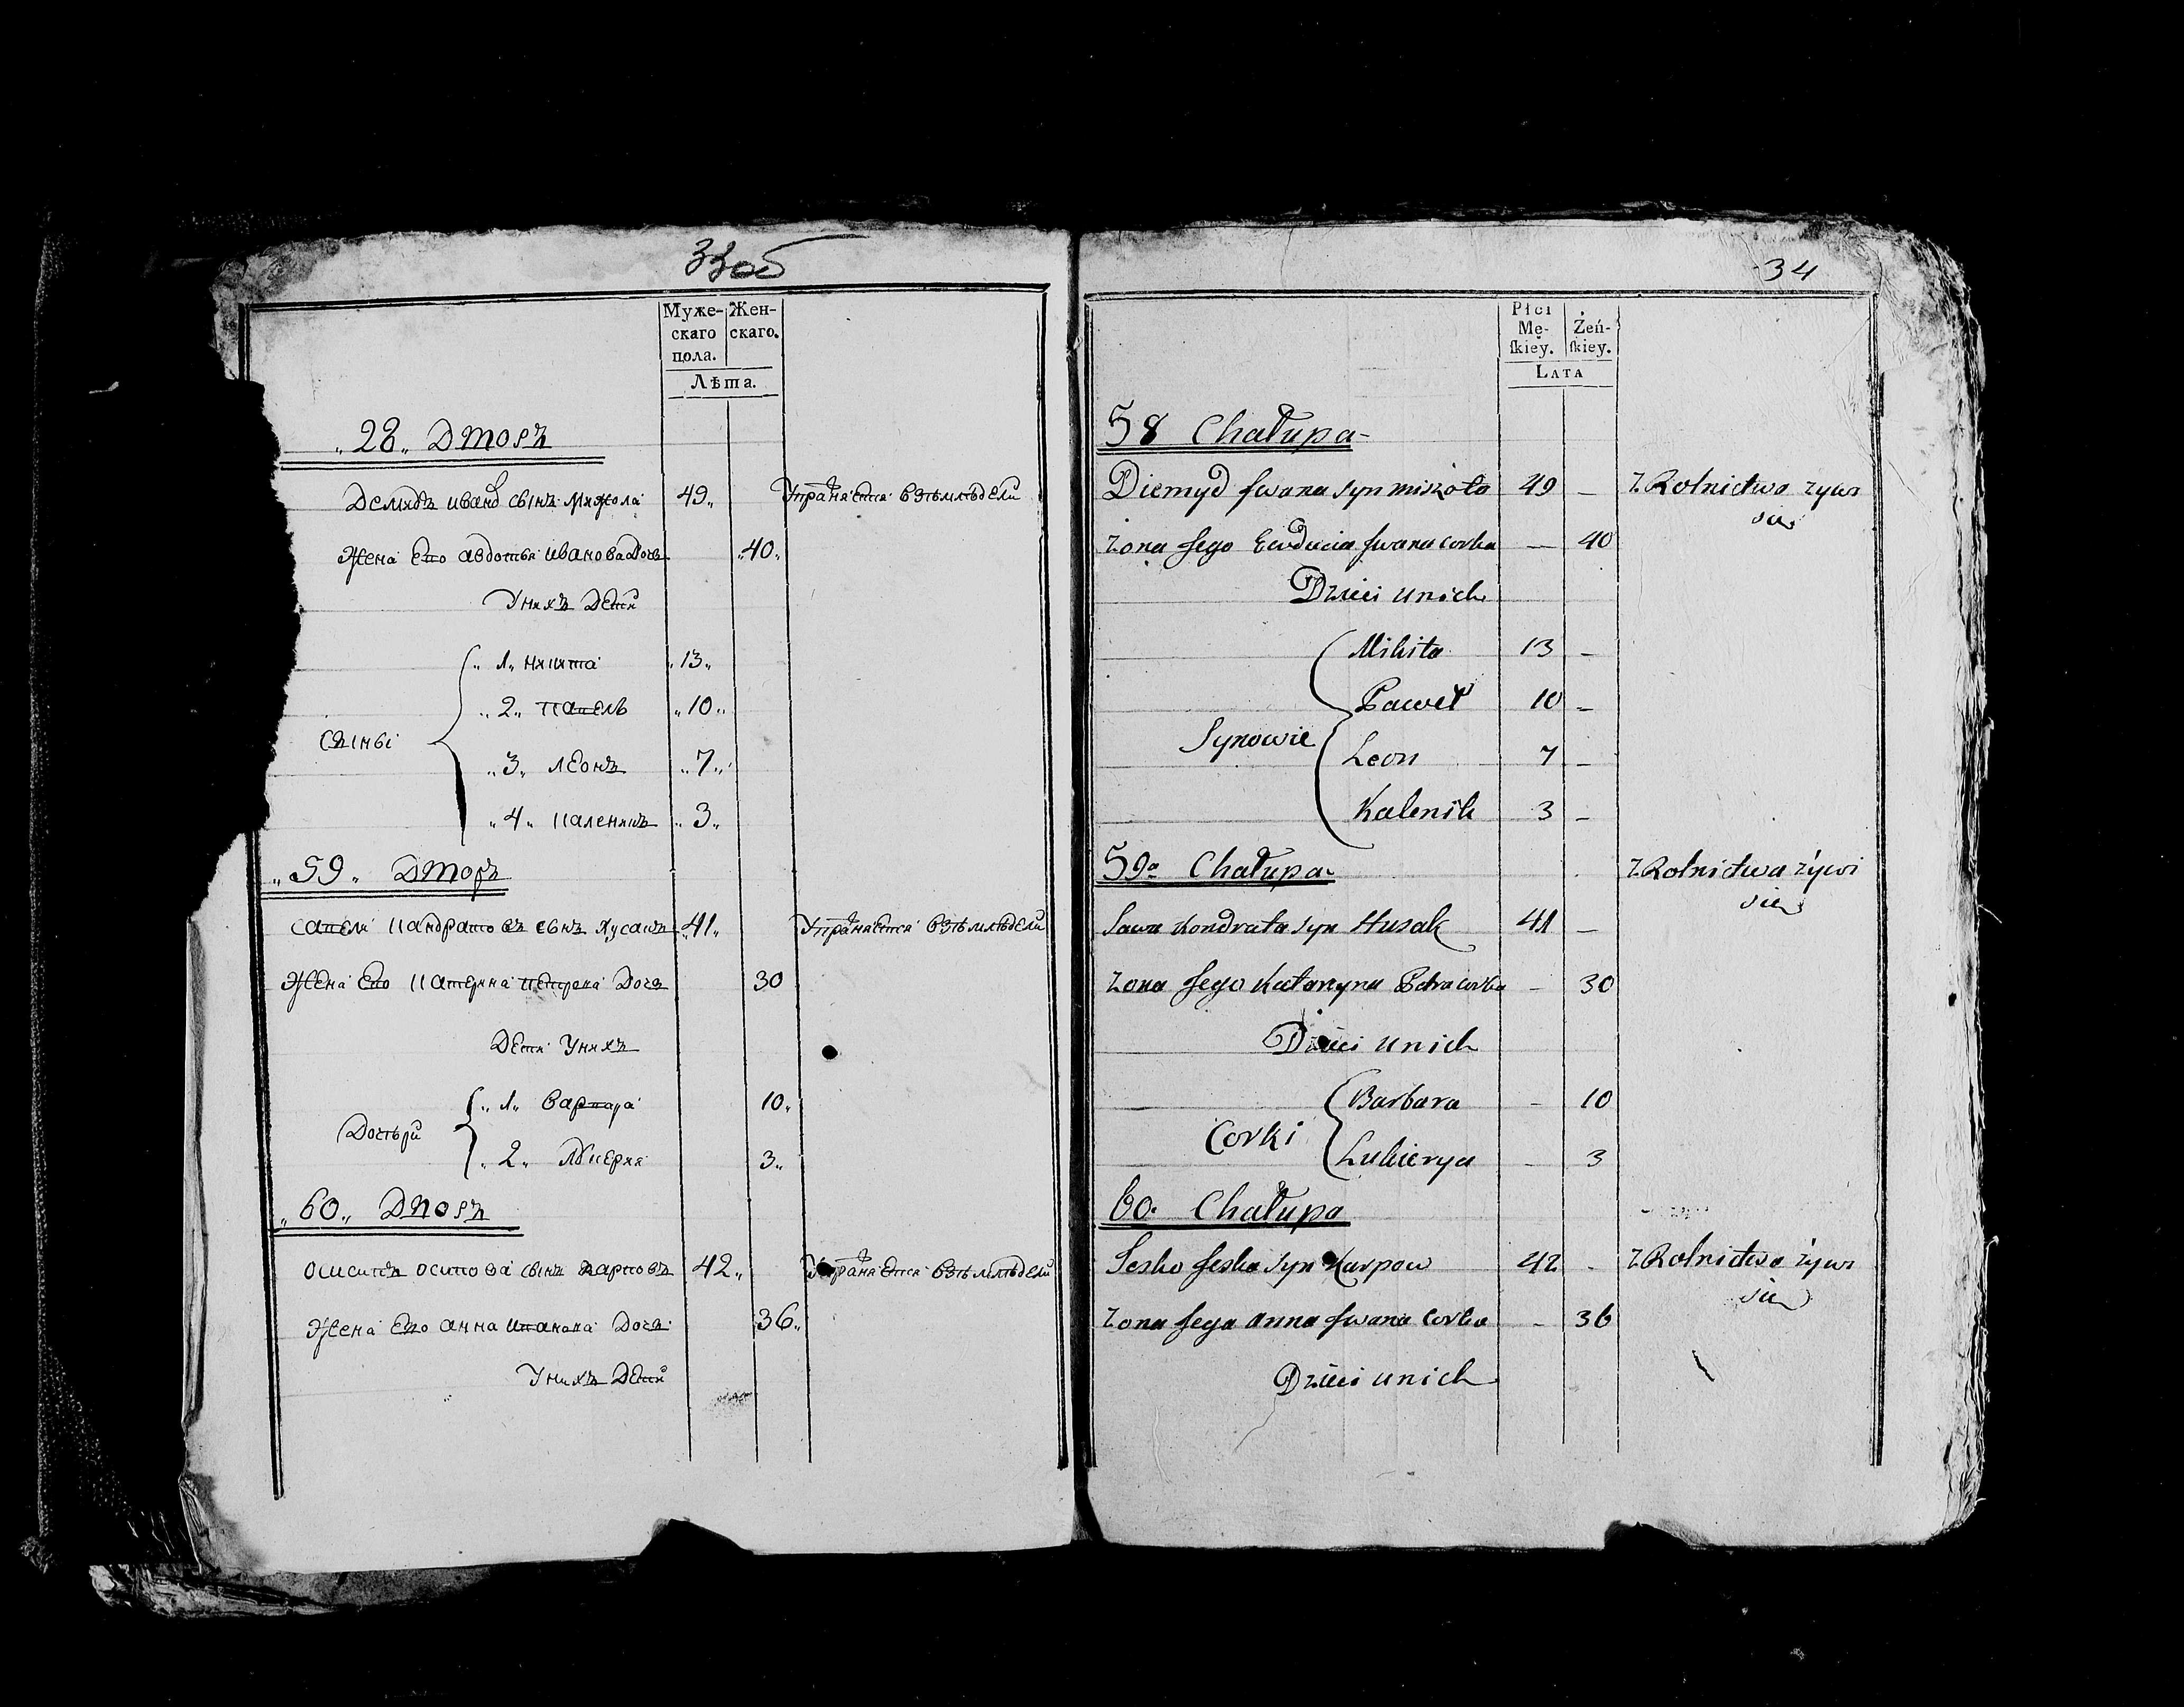 33об
Муже-
скаго
пола.
Жен-
скаго.
Лѣта.
„28„ Дворъ
Демидъ иванов сынъ Мижола 49„ Упражняется взѣмлѣдели
Жена Его авдотья иванова Дочь „40„
Унихъ Дети
Сыны
„1„ никита „13„
„2„ павель „10„
„3„ леонъ „7„
„4„ каленикъ „3„
„59„ Дворъ
савели кандратовъ сынъ Хусакъ „41„ Упражняется взѣмлѣдели
Жена Его катерина петрова Дочь 30
Дети Унихъ
Дочьри
„1„ варвара 10„
„2„ лукерия 3„
„60„ Дворъ
осипъ осипова сынъ карповъ 42„ Упражняется взѣмлѣдели
Жена Его анна иванова Дочь 36„
Унихъ Дети
34
Płci
Mę-
ſkiey.
Żeń-
ſkiey.
LATA
58 Chałupa
Diemyd Iwana syn Miszoło 49 – Z Rolnictwa żywi
się
żona Jego Ewducia Iwana corka — 40
Dzieci unich
Synowie
Mikita 13 –
Paweł 10 –
Leon 7 –
Kalenik 3 –
59a Chałupa Z Rolnictwa żywi
się
Sawa Kondrata syn Husak 41 –
żona Jego Katarzyna Petra corka – 30
Dzieci unich
Corki
Barbara – 10
Lukierya – 3
60. Chałupa
Jesko Jeska syn Karpow 42 – Z Rolnictwa żywi
się
żona Jego Anna Iwana Corka – 36
Dzieci unich